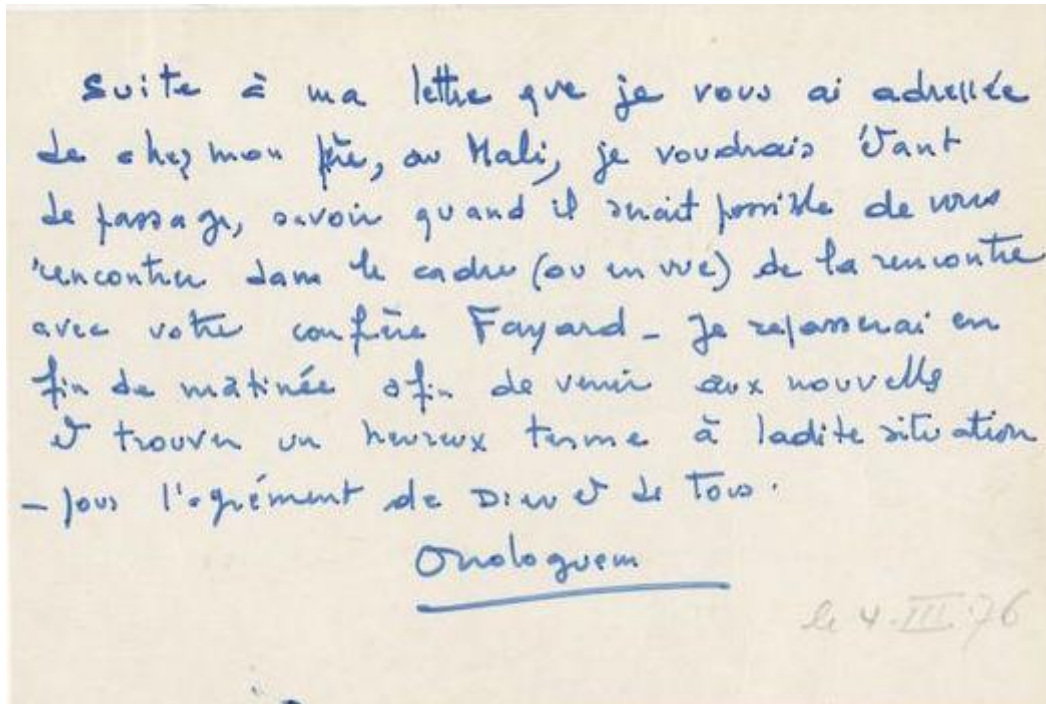 Suite à ma lettre que je vous ai adressée
de chez mon père, au Mali, je voudrais étant
de passage, savoir quand il serait possible de vous
rencontrer dans le cadre (ou en vue) de la rencontre
avec votre confrère Fayard - Je repasserai en
fin de matinée afin de venir aux nouvelles
et trouver un heureux terme à ladite situation
- pour l'agrément de Dieu et de Tous.
Ouologuem
le 4.III.76